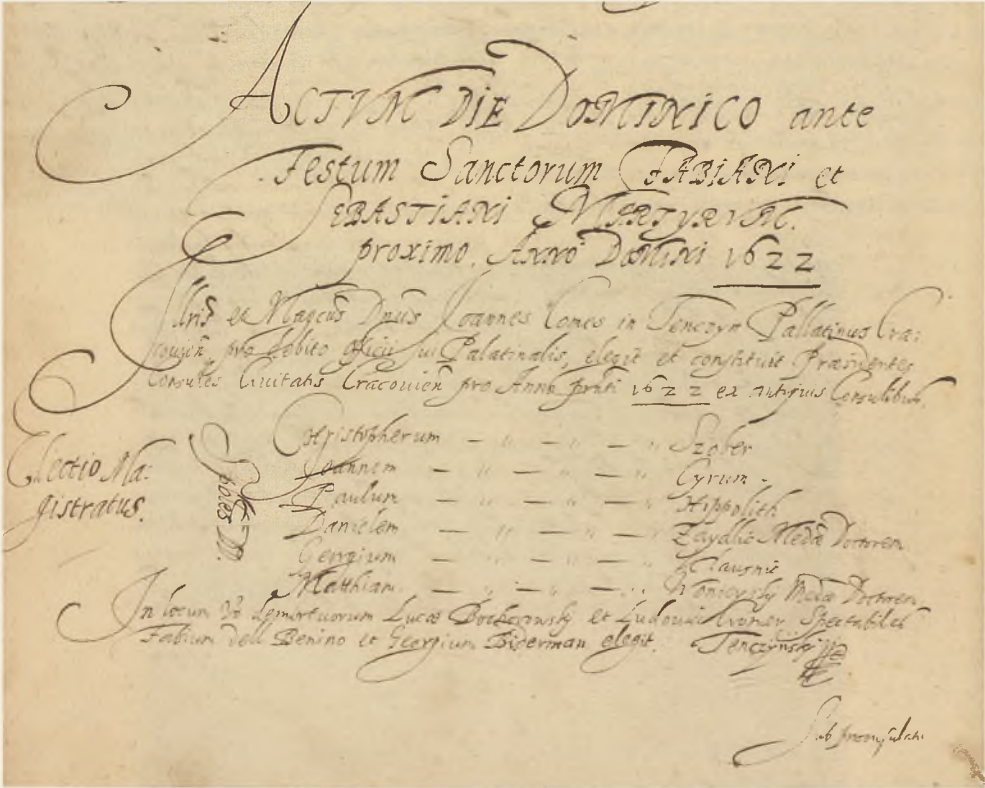 ACTVM DIE DOMINICO ante
Festum Sanctorum FABIANI et
SEBASTIANI MARTYRVM.
proximo. ANNO DOMINI 1622
Illris et Magcus Dnus Joannes Comes in Tenczyn Pallatinus Cra:
couien, pro debito officii sui Palatinalis, elegit et constituit Præsidentes
Consules Ciuitatis Cracouien pro Anno pnti 1622 ex antiquis Consulibus.
Electio Ma:
gistratus.
Christopherum — „ — „ — „ Szober
Joannem — „ — „ — „ Cyrum.
Paulum — „ — „ — „ Hippolith
Danielem — „ — „ — Zaydlic Medæ Doctorem
Georgium — „ — „ — Klausnic
Matthiam — „ — „ — Wonieysky Medæ Doctorem
In locum Vo demortuorum Lucæ Bochorowsky et Ludouici Kromer Spectabiles
Fabium dell Benino et Georgium Biderman elegit. Tenczynsky